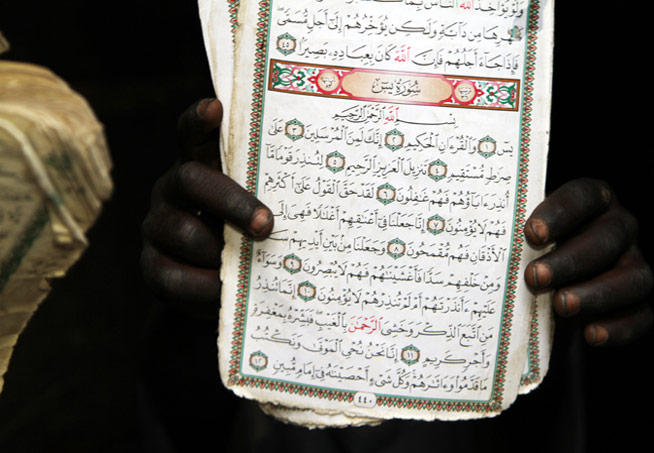 وَلَوْ يُؤَاخِذُ ٱللَّهُ ٱلنَّاسَ بِمَا
ظَهْرِهَا مِن دَآبَّةٍ وَلَٰكِن يُؤَخِّرُهُمْ إِلَىٰٓ أَجَلٍ مُّسَمًّى
فَإِذَا جَآءَ أَجَلُهُمْ فَإِنَّ ٱللَّهَ كَانَ بِعِبَادِهِۦ بَصِيرًا ٤٥
سُورَةُ يسٓ
بِسْمِ ٱللَّهِ ٱلرَّحْمَٰنِ ٱلرَّحِيمِ
يسٓ ١ وَٱلْقُرْءَانِ ٱلْحَكِيمِ ٢ إِنَّكَ لَمِنَ ٱلْمُرْسَلِينَ ٣ عَلَىٰ
صِرَٰطٍ مُّسْتَقِيمٍ ٤ تَنزِيلَ ٱلْعَزِيزِ ٱلرَّحِيمِ ٥ لِتُنذِرَ قَوْمًا مَّآ
أُنذِرَ ءَابَآؤُهُمْ فَهُمْ غَٰفِلُونَ ٦ لَقَدْ حَقَّ ٱلْقَوْلُ عَلَىٰٓ أَكْثَرِهِمْ
فَهُمْ لَا يُؤْمِنُونَ ٧ إِنَّا جَعَلْنَا فِىٓ أَعْنَٰقِهِمْ أَغْلَٰلًا فَهِىَ إِلَى
ٱلْأَذْقَانِ فَهُم مُّقْمَحُونَ ٨ وَجَعَلْنَا مِنۢ بَيْنِ أَيْدِيهِمْ
وَمِنْ خَلْفِهِمْ سَدًّا فَأَغْشَيْنَٰهُمْ فَهُمْ لَا يُبْصِرُونَ ٩ وَسَوَآءٌ
عَلَيْهِمْ ءَأَنذَرْتَهُمْ أَمْ لَمْ تُنذِرْهُمْ لَا يُؤْمِنُونَ ١٠ إِنَّمَا تُنذِرُ
مَنِ ٱتَّبَعَ ٱلذِّكْرَ وَخَشِىَ ٱلرَّحْمَٰنَ بِٱلْغَيْبِ فَبَشِّرْهُ بِمَغْفِرَةٍ
وَأَجْرٍ كَرِيمٍ ١١ إِنَّا نَحْنُ نُحْىِ ٱلْمَوْتَىٰ وَنَكْتُبُ
مَا قَدَّمُوا۟ وَءَاثَٰرَهُمْ وَكُلَّ شَىْءٍ أَحْصَيْنَٰهُ فِىٓ إِمَامٍ مُّبِينٍ ١٢
٤٤٠